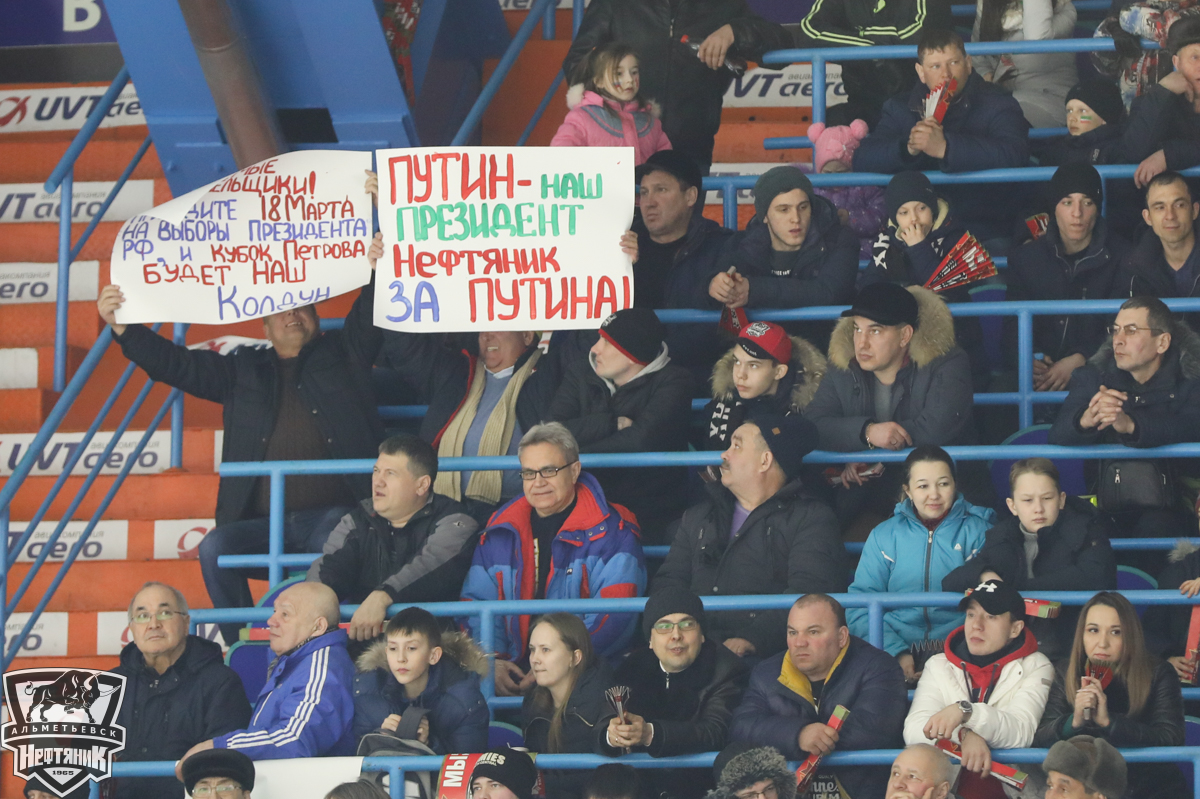 В
UVTaero
UVTaero
UVTaero
aero
UVTaero
aero
aero
ЕЛЬЩИКИ!
18 МАРТА
НА ВЫБОРЫ ПРЕЗИДЕНТА
РФ, И КУБОК ПЕТРОВА
БУДЕТ НАШ
КОЛДУН
ПУТИН- НАШ
ПРЕЗИДЕНТ
НЕФТЯНИК
ЗА ПУТИНА!
АЛЬМЕТЬЕВСК
НЕФТЯНИК
1965
МЫ